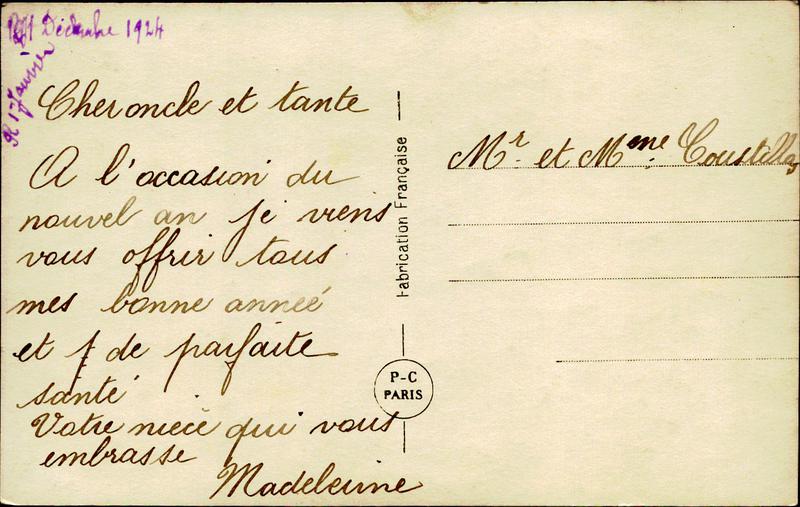 Décembre 1924
R 1 Janvier
Cher oncle et tante
A l'occasion du
nouvel an je viens
vous offrir tous
mes bonne année
et de parfaite
santé
Votre niece qui vous
embrasse
Madeleine
Fabrication Française
P-C
PARIS
Mr. et Mme. Coustellas